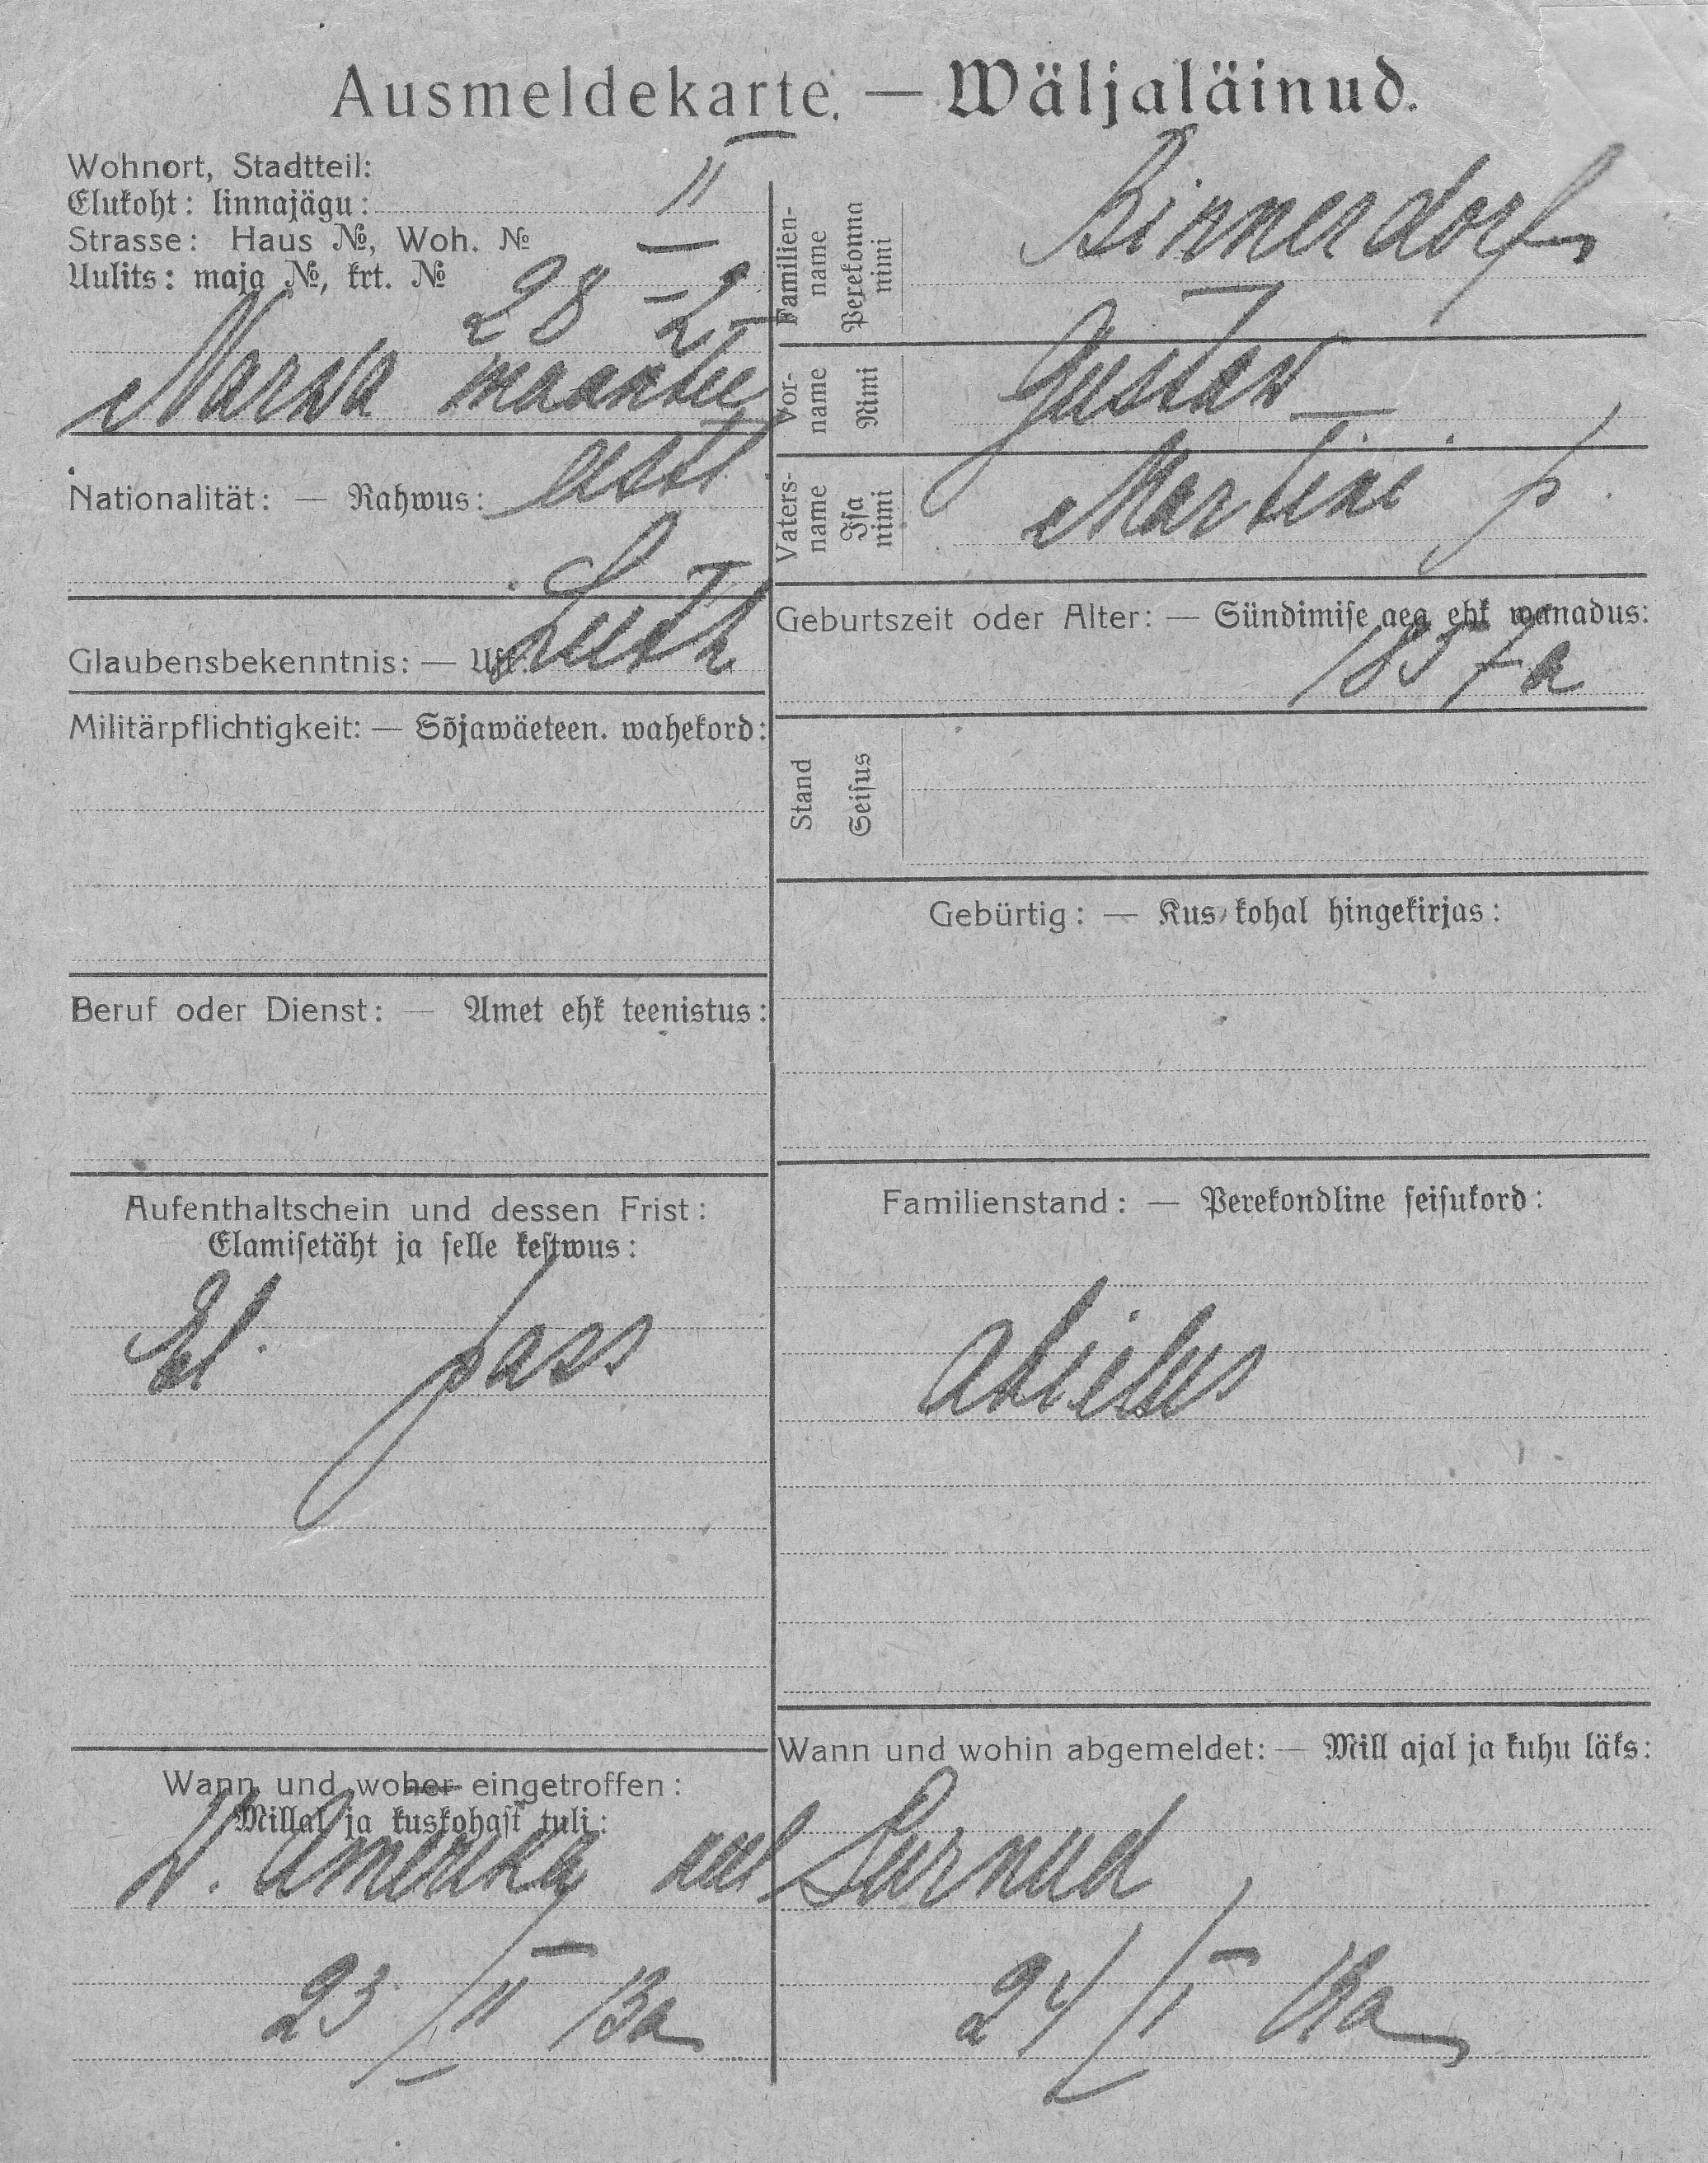 Ausmeldekarte. — Wäljaläinud.
Wohnort, Stadtteil:
Elukoht: linnajägu: II
Strasse: Haus №, Woh. №
Uulits: maja №, krt. №
28 - 2
Narva maantee
Nationalität: — Rahwus: eesti
Glaubensbekenntnis: — Usk: Luth
Militärpflichtigkeit: — Sõjawäeteen. wahekord:
Beruf oder Dienst: — Amet ehk teenistus:
Aufenthaltschein und dessen Frist:
Elamisetäht ja selle kestwus:
El. pass
Wann und woher eingetroffen:
Millal ja kuskohast tuli:
W. Amerika
23/II 13a
Familien-
name
Perekonna
nimi
Binnerdorf
Vor-
name
Nimi
Gustav
Vaters-
name
Isa
nimi
Martini p.
Geburtszeit oder Alter: — Sündimise aeg ehk wanadus:
1857 a
Stand
Seisus
Gebürtig: — Kus kohal hingekirjas:
Familienstand: — Perekondline seisukord:
abielus
Wann und wohin abgemeldet: — Mill ajal ja kuhu läks:
Surnud